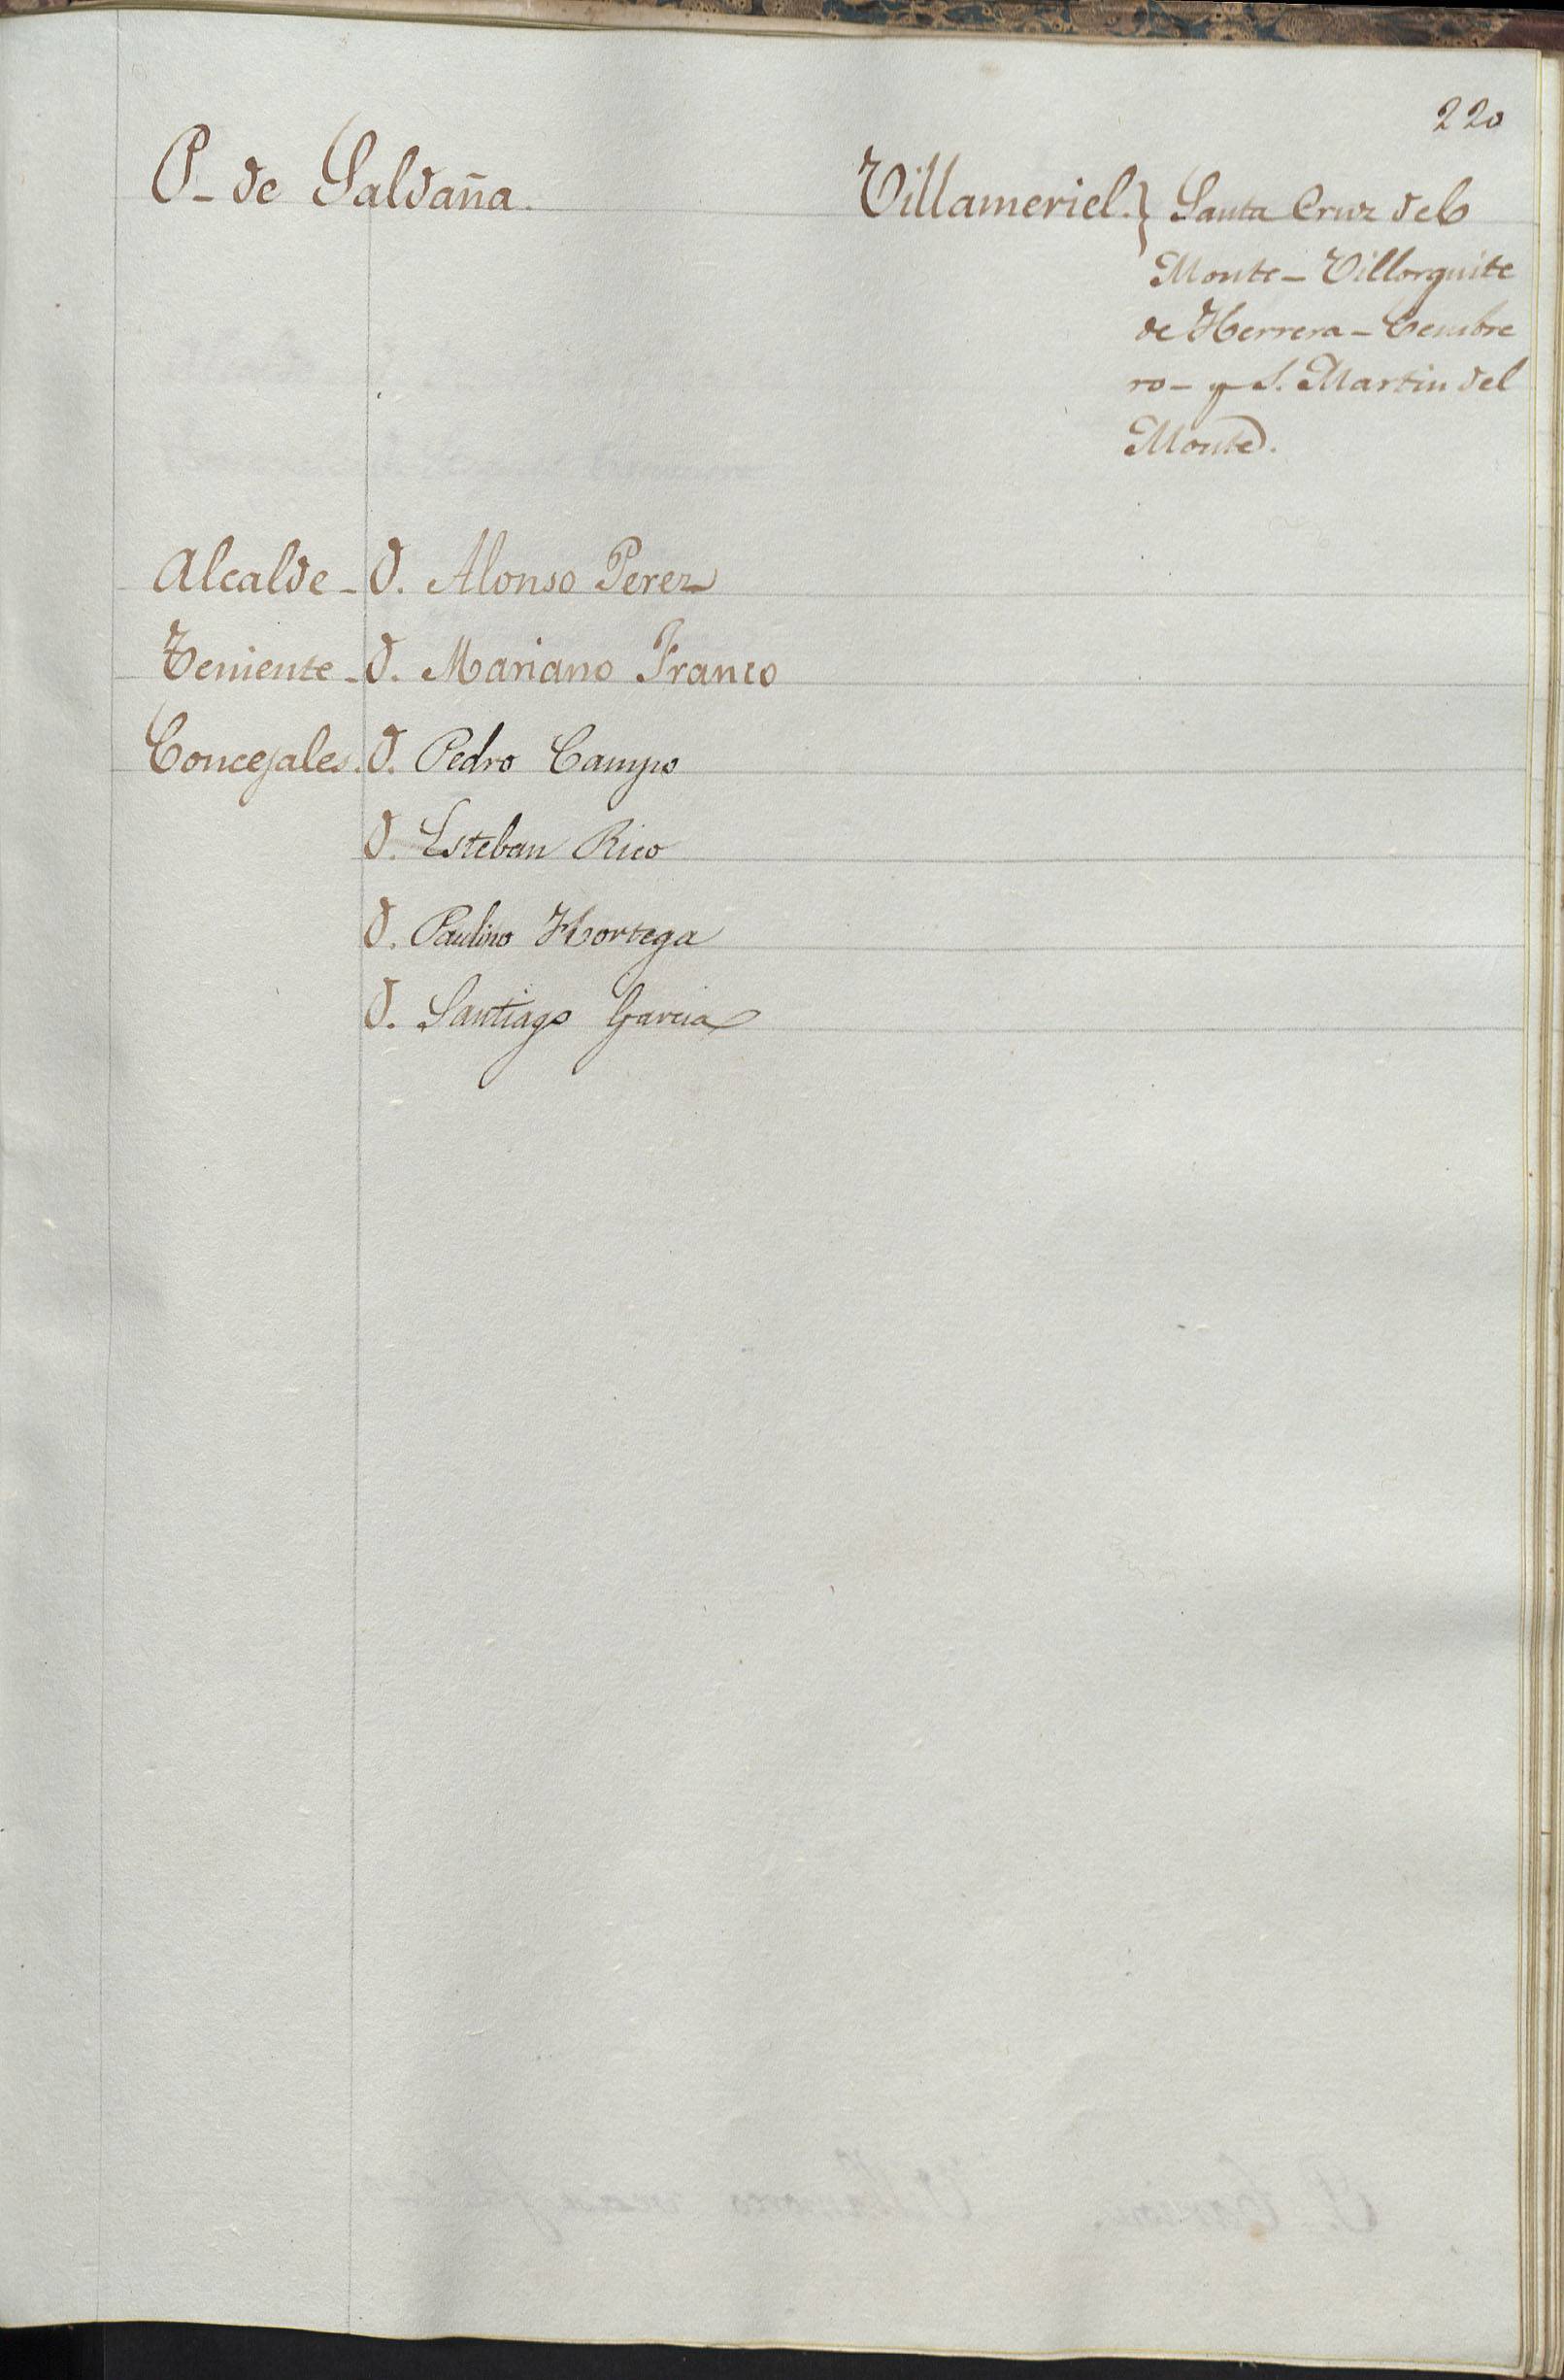 220
P- de Saldaña.
Villameriel.} Santa Cruz del
Monte - Villorquite
de Herrera - Cembre
ro - y S. Martin del
Monte.
Alcalde - D. Alonso Perez
Teniente - D. Mariano Franco
Concejales. D. Pedro Campo
D. Esteban Rico
D. Paulino Hortega
D. Santiago Garcia